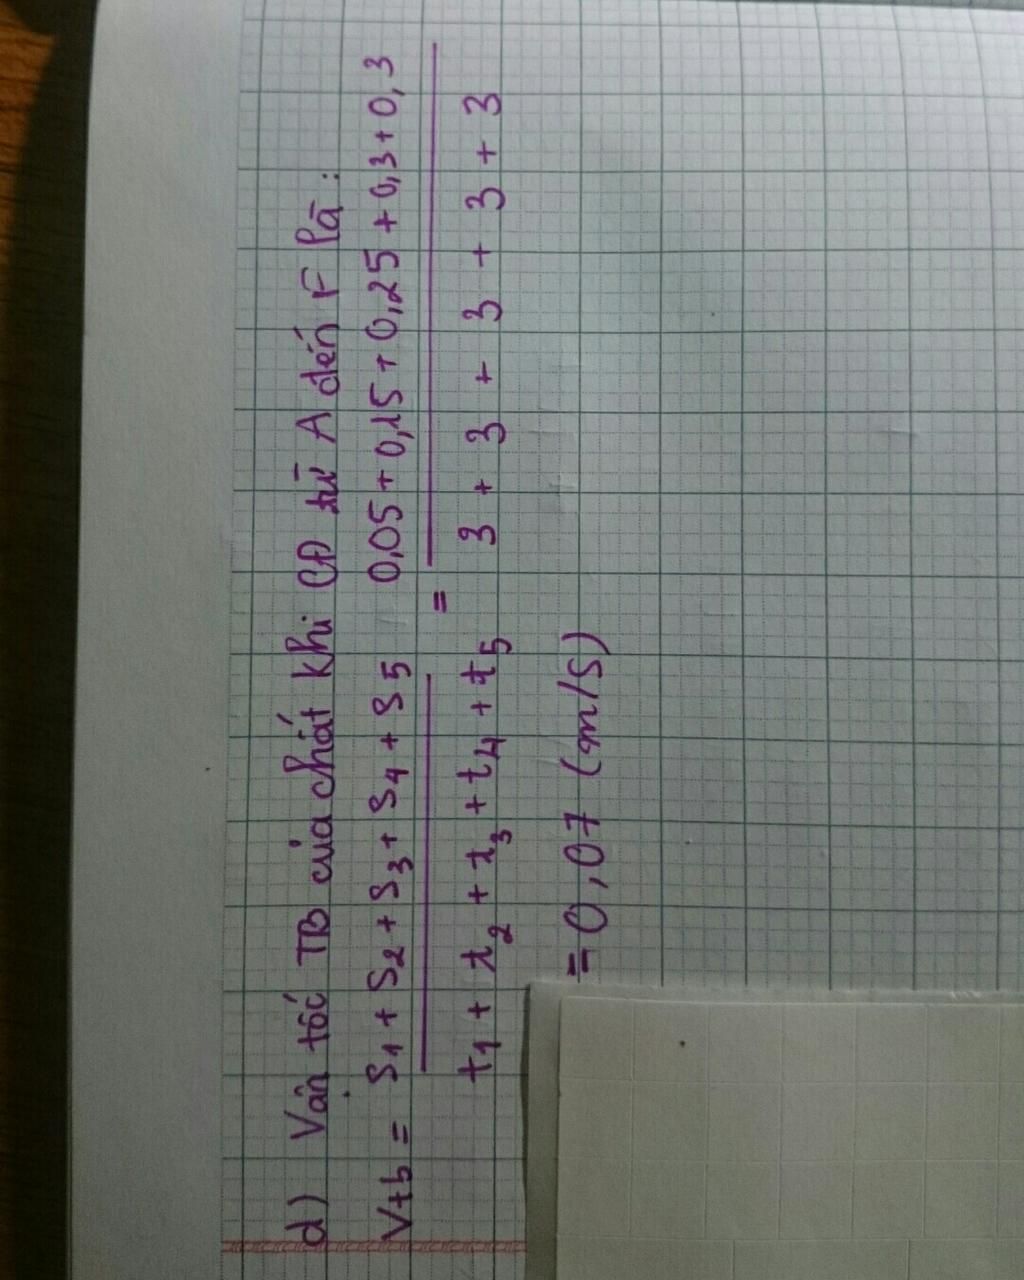 d) Vận tốc TB của chất khi CĐ từ A đến F là:
Vtb = S1 + S2 + S3 + S4 + S5 / t1 + t2 + t3 + t4 + t5 = 0,05 + 0,15 + 0,25 + 0,3 + 0,3 / 3 + 3 + 3 + 3 + 3
= 0,07 (m/s)